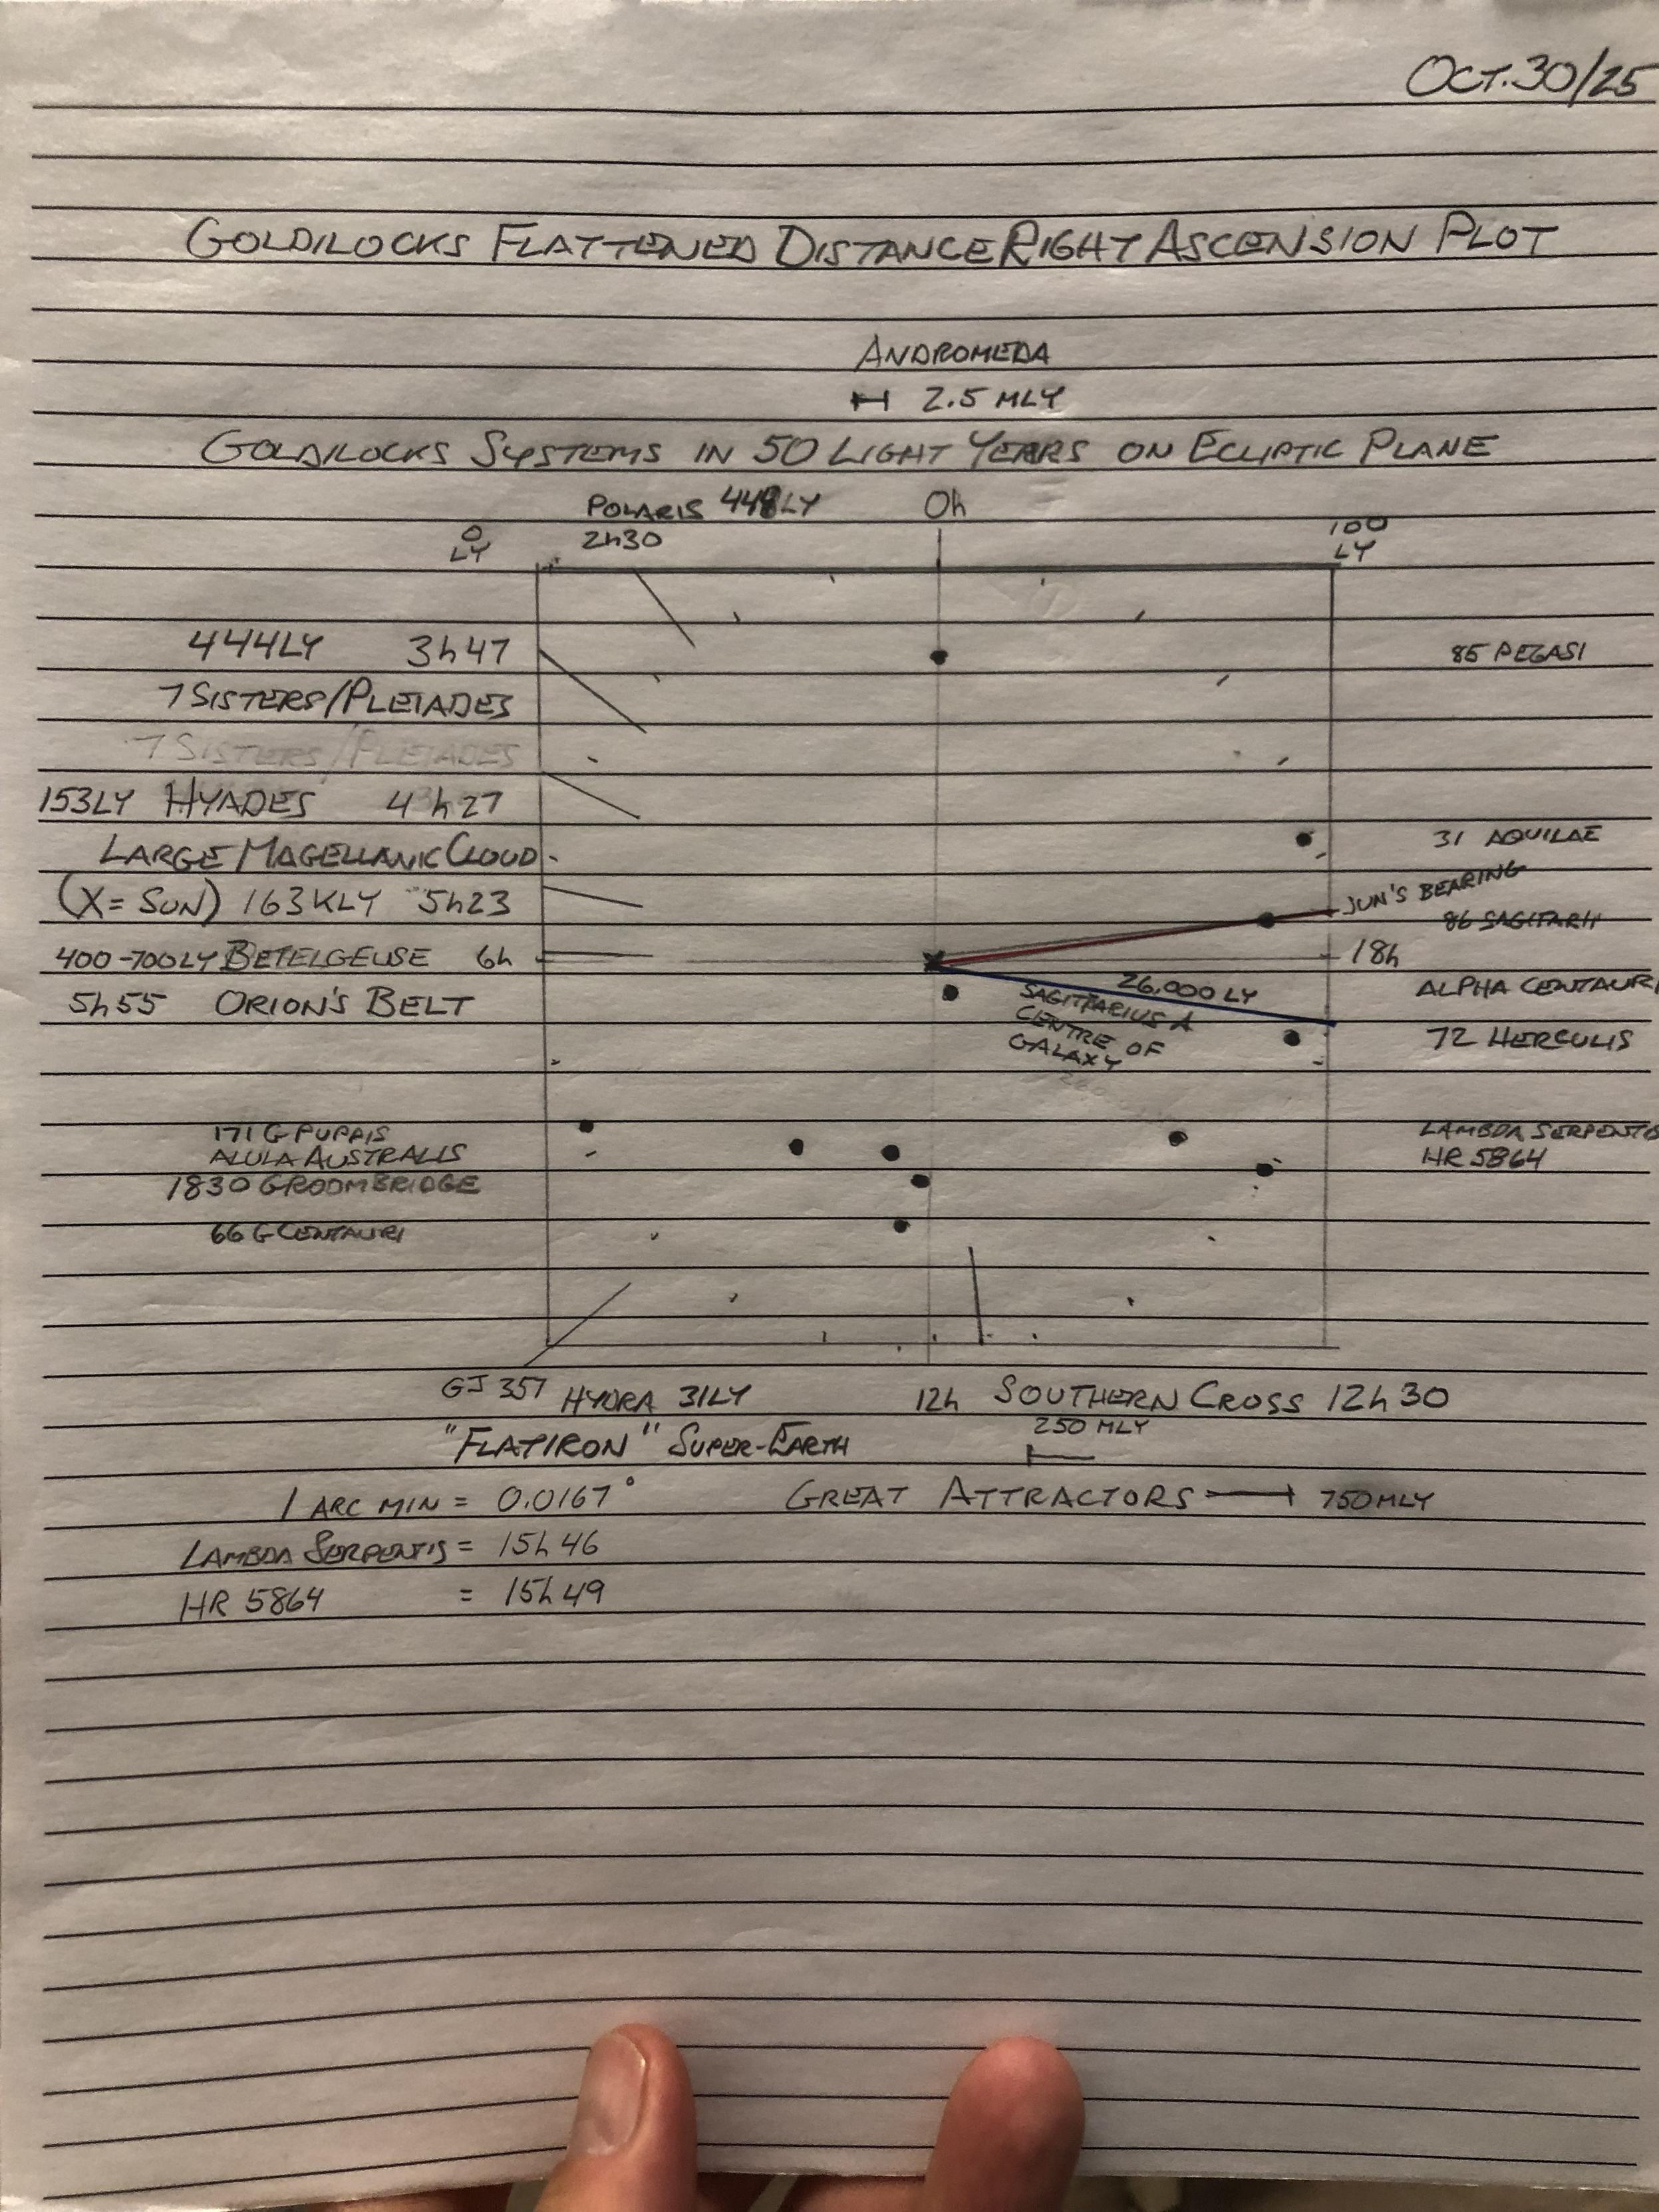 OCT.30/25
GOLDILOCKS FLATTENED DISTANCE RIGHT ASCENSION PLOT
ANDROMEDA
2.5 MLY
GOLDILOCKS SYSTEMS IN 50 LIGHT YEARS ON ECLIPTIC PLANE
POLARIS 448LY
2h30
0h
0
LY
100
LY
444LY 3h47
7 SISTERS/PLEIADES
7 SISTERS/PLEIADES
85 PEGASI
153LY HYADES 4h27
LARGE MAGELLANIC CLOUD
31 AQUILAE
(X = SUN) 163KLY 5h23
JUN'S BEARING
86 SAGITARII
400-700LY BETELGEUSE 6h
18h
5h55 ORION'S BELT
26,000 LY
SAGITTARIUS A
CENTRE OF
GALAXY
ALPHA CENTAURI
72 HERCULIS
171 G PUPPIS
ALULA AUSTRALIS
1830 GROOMBRIDGE
66 G CENTAURI
LAMBDA SERPENTIS
HR 5864
GJ 357 HYDRA 31LY
12h SOUTHERN CROSS 12h30
"FLATIRON" SUPER-EARTH
250 MLY
1 ARC MIN = 0.0167°
GREAT ATTRACTORS 750MLY
LAMBDA SERPENTIS = 15h46
HR 5864 = 15h49